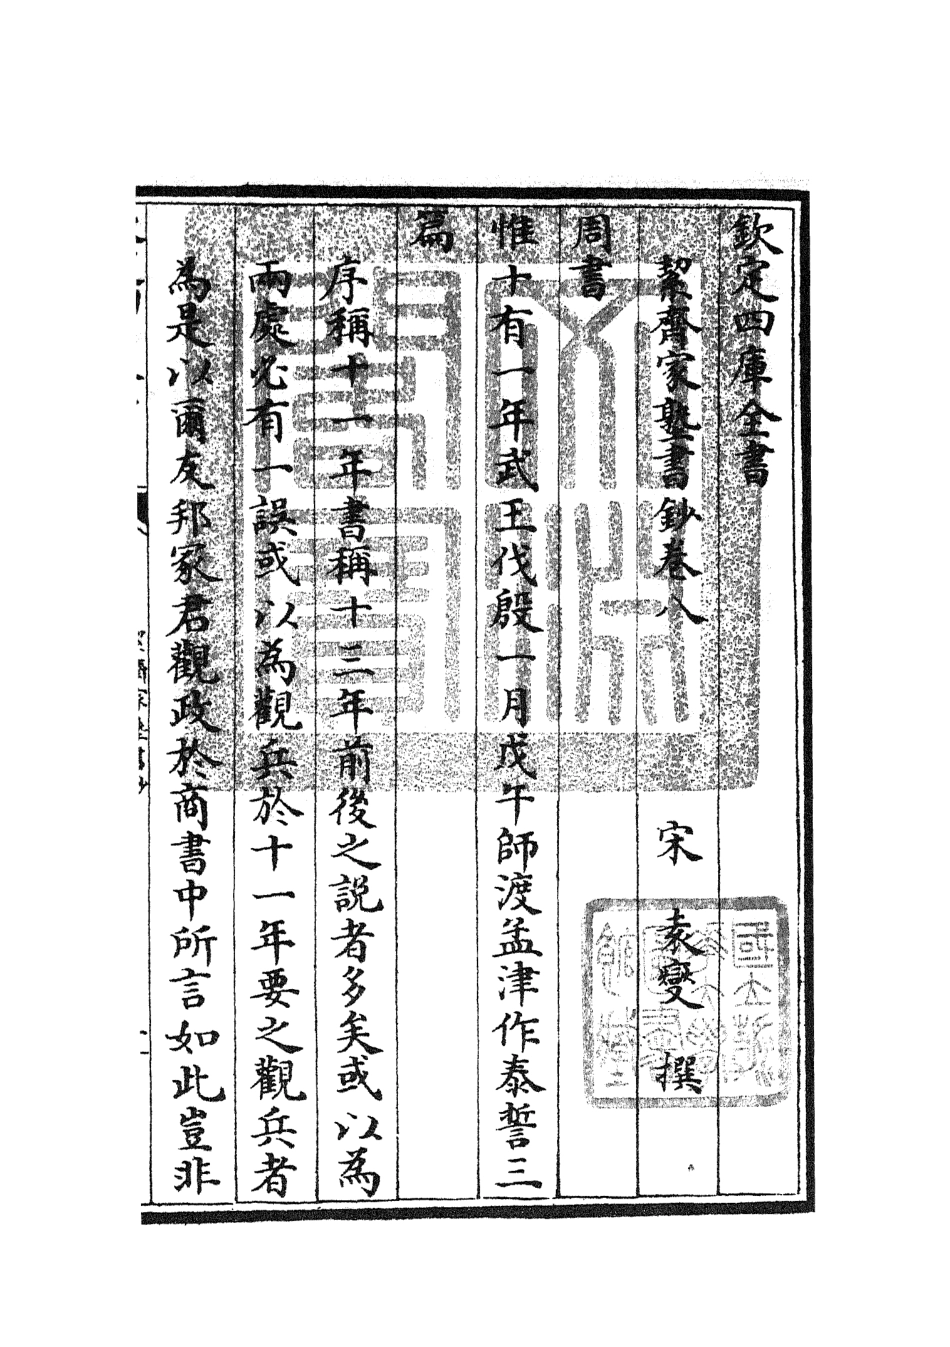 欽定四庫全書
絜齋家塾書鈔卷八
宋 袁燮 撰
周書
惟十有一年武王伐殷一月戊午師渡孟津作泰誓三
篇
序稱十一年書稱十三年前後之説者多矣或以為
兩處必有一誤或以為觀兵於十一年要之觀兵者
為是以爾友邦冢君觀政於商書中所言如此豈非